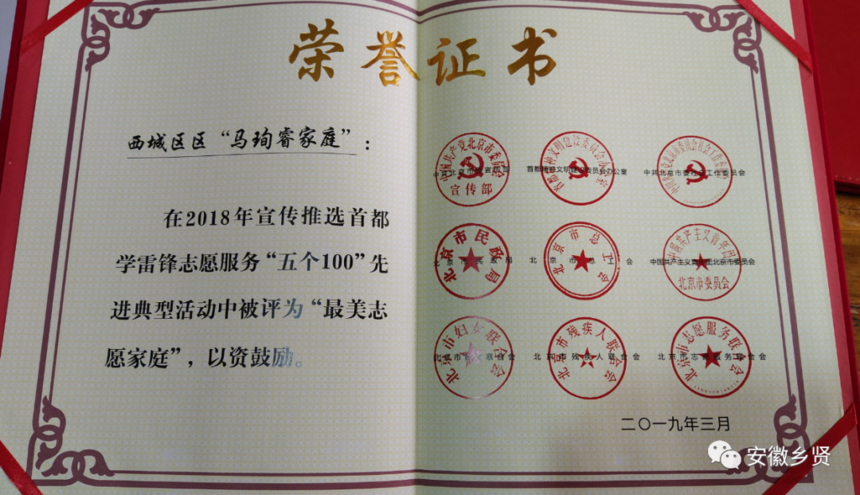 荣誉证书
西城区区“马珣睿家庭”：
在2018年宣传推选首都
学雷锋志愿服务“五个100”先
进典型活动中被评为“最美志
愿家庭”，以资鼓励。
中国共产党北京市委员会
宣传部
北京市民政局
北京市总工会
北京市委员会
北京市妇女联合会
北京市残疾人联合会
北京市志愿服务联合会
北京市残疾人联合会
北京市志愿服务联合会
二〇一九年三月
安徽乡贤